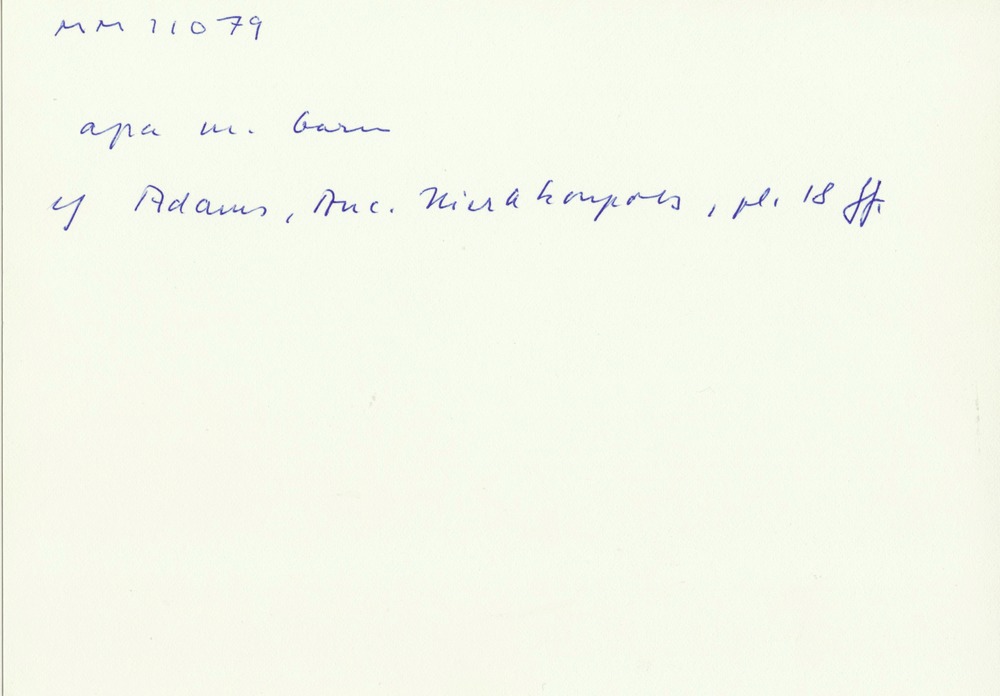 MM 11079
apa m. barn
cf Adams, Anc. Hierakonpolis, pl. 18 ff.